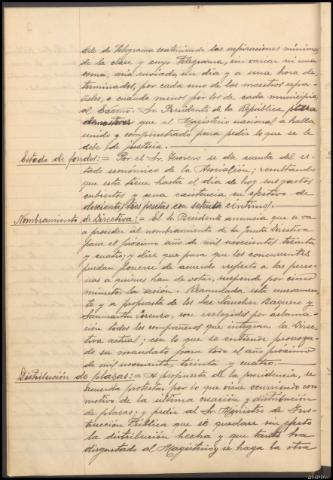 delo de telegrama conteniendo las aspiraciones mínimas
de la clase y cuyo telegrama, sin variar ni una
coma, sería enviado, en día y a una hora de-
terminados, por cada uno de los maestros españ-
oles, o cuando menos por los de cada municipio
al Excmo. Sr. Presidente de la República para
demostrar que el Magisterio nacional se halla
unido y compenetrado para pedir lo que se le
debe de justicia.
Estado de fondos: = Por el Sr. Tesorero se da cuenta del es-
tado económico de la Asociación; resultando
que esta tiene hasta el día de hoy sus gastos
cubiertos y una existencia en efectivo de
pesetas con céntimos.
Nombramiento de Directiva: = El Sr. Presidente anuncia que se va
a proceder al nombramiento de la Junta Directiva
para el próximo año de mil novecientos treinta
y cuatro; y dice que para que los concurrentes
puedan ponerse de acuerdo respecto a las perso-
nas a quienes han de votar, suspende por cinco
minutos la sesión. Reanudada esta nuevamen-
te y a propuesta de los Sres. Sánchez Baquero y
Sanmartín Lorenzo, son reelegidos por aclama-
ción todos los compañeros que integran la Direc-
tiva actual; con lo que se entiende prorroga-
do su mandato para todo el año próximo
de mil novecientos treinta y cuatro.
Distribución de plazas: = A propuesta de la presidencia, se
acuerda protestar por lo que viene ocurriendo con
motivo de la última creación y distribución
de plazas; y pedir al Sr. Ministro de Ins-
trucción Pública que se quede sin efecto
la distribución hecha y que tanto ha
disgustado al Magisterio, y se haga la otra